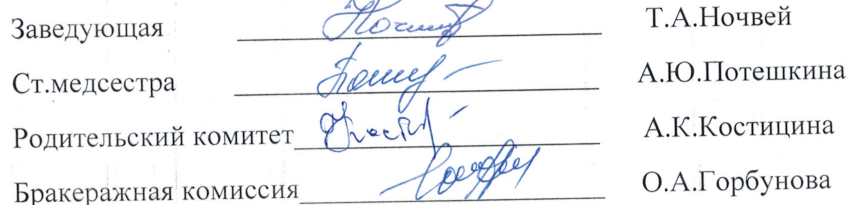 Заведующая Т.А.Ночвей
Ст.медсестра А.Ю.Потешкина
Родительский комитет А.К.Костицина
Бракеражная комиссия О.А.Горбунова